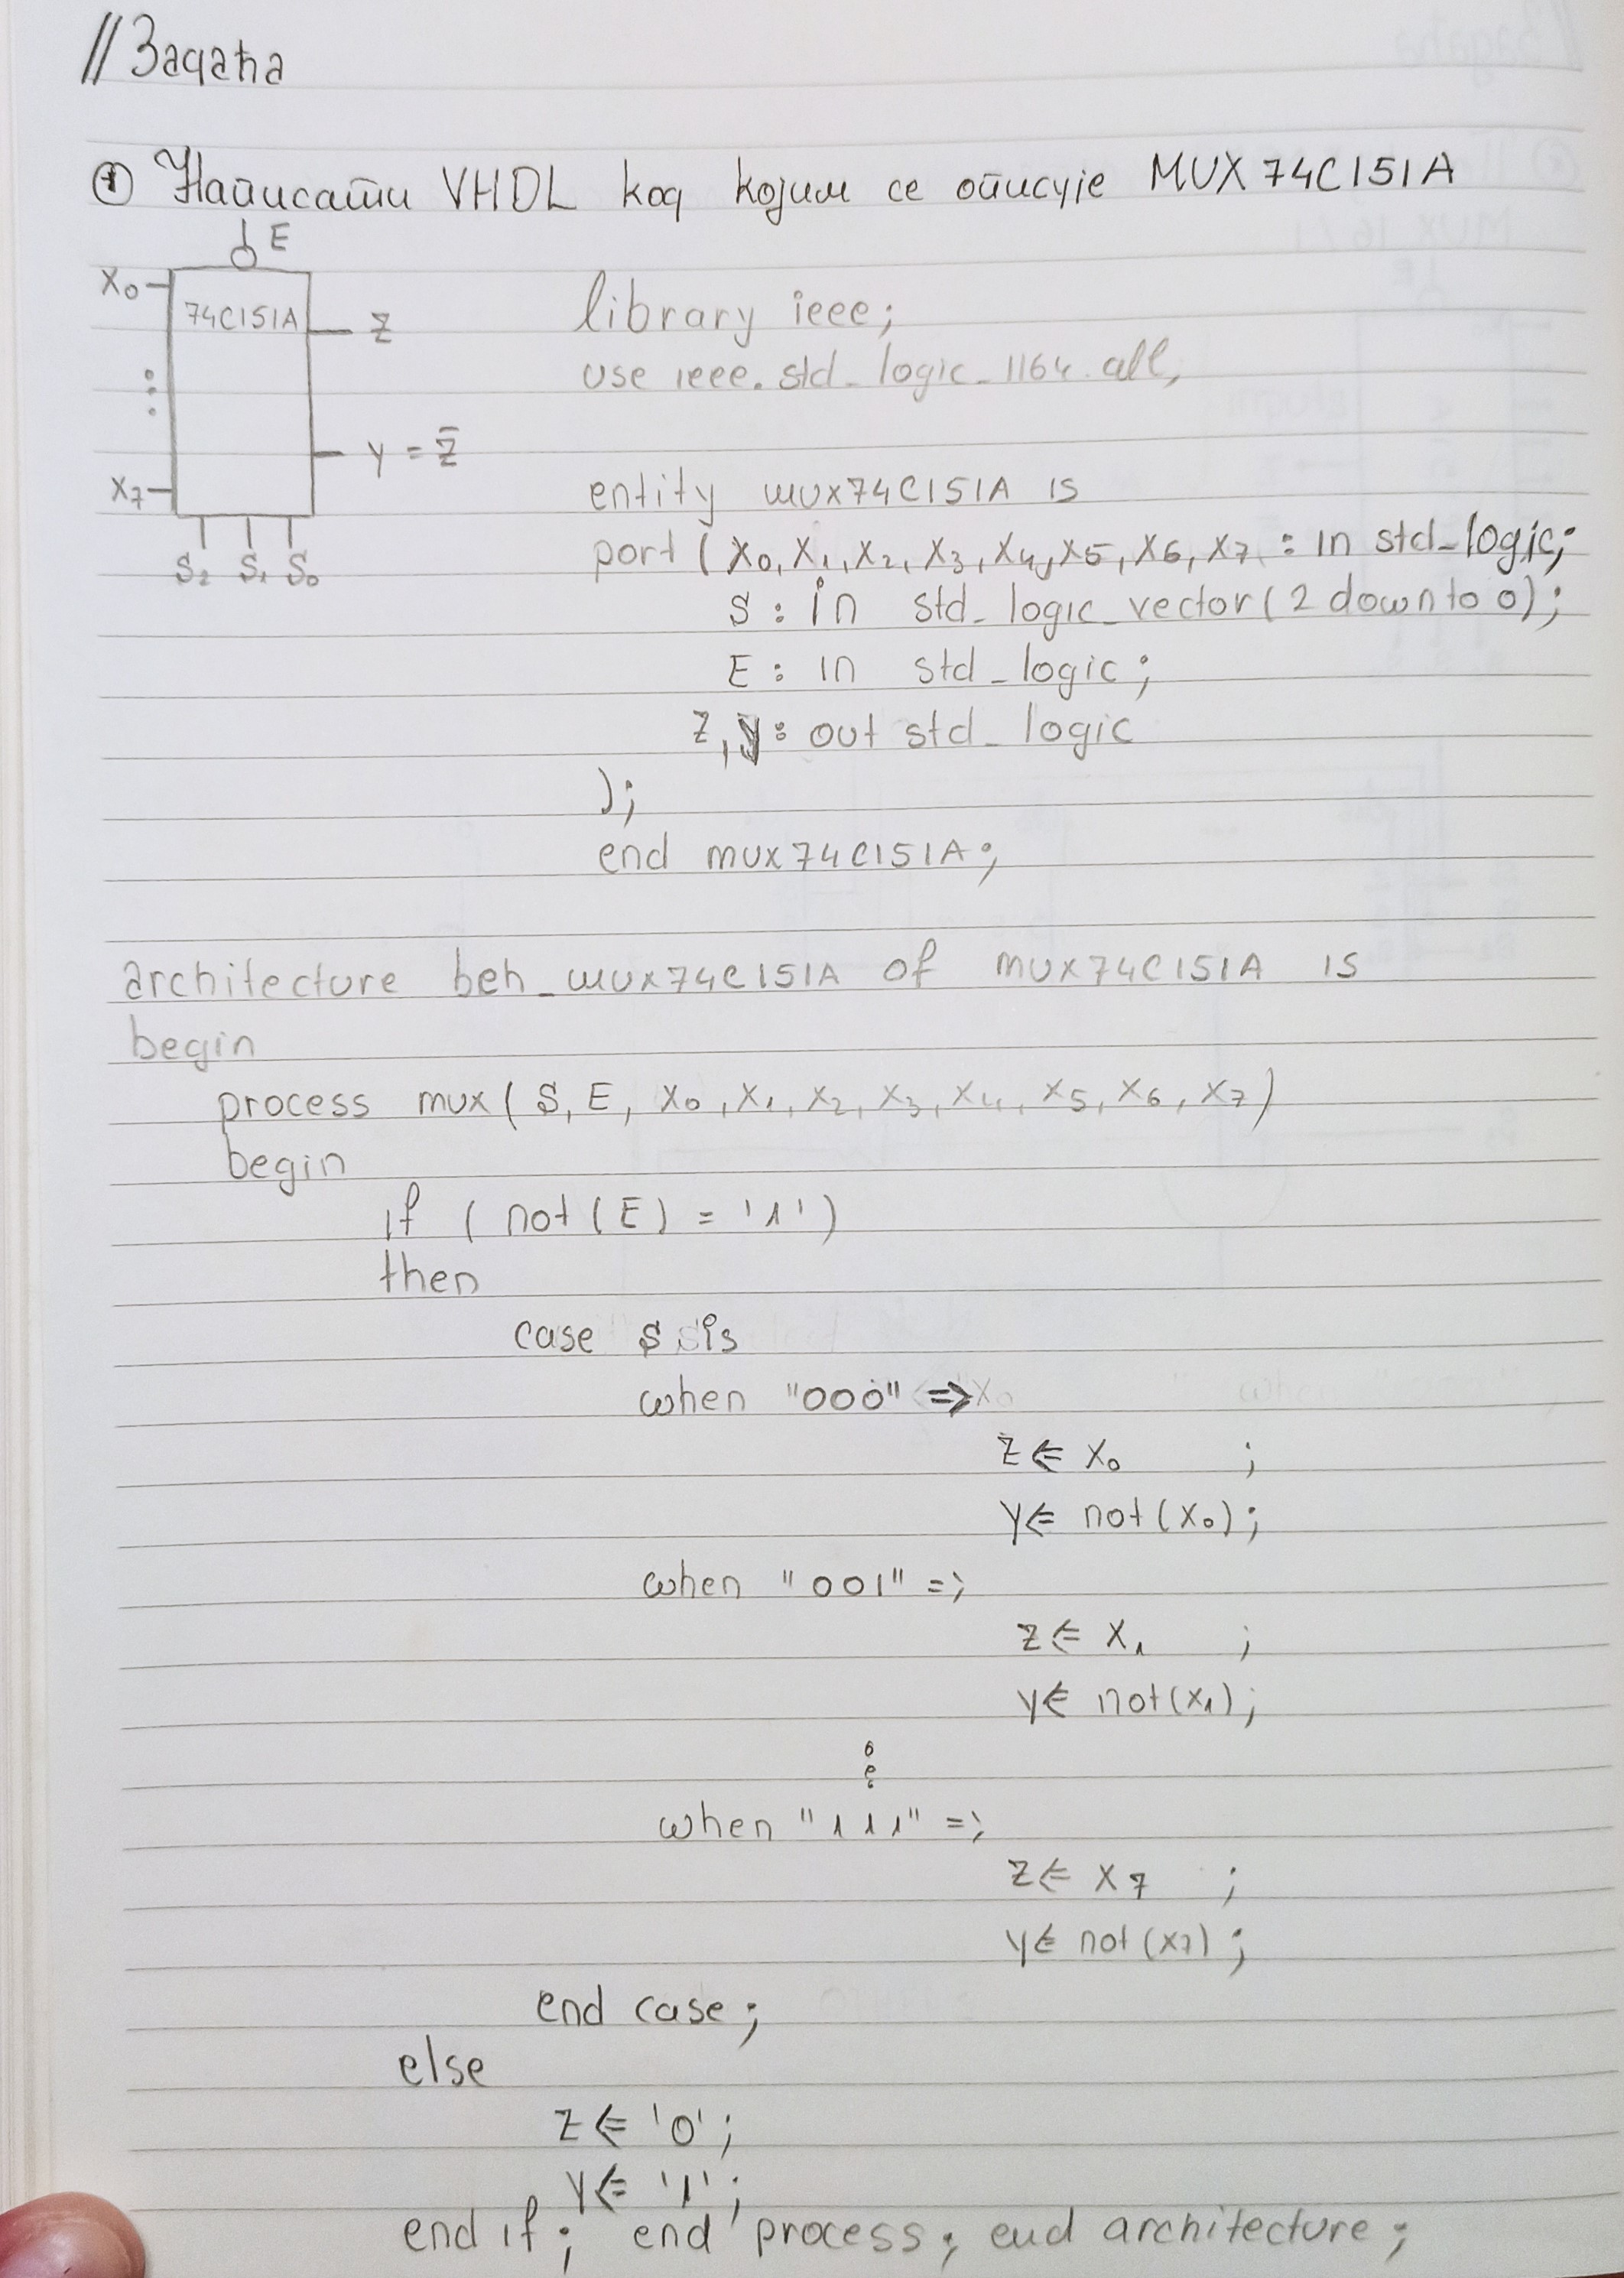 // Задаћа
① Написати VHDL код којим се описује MUX 74C151A
E
X0
74C151A
Z
y = Z̄
X7
S2 S1 S0
library ieee;
use ieee.std_logic_1164.all;
entity mux74C151A is
port (X0, X1, X2, X3, X4, X5, X6, X7 : in std_logic;
S : in std_logic_vector(2 downto 0);
E : in std_logic;
Z, y : out std_logic
);
end mux74C151A;
architecture beh_mux74C151A of mux74C151A is
begin
process mux( S, E, X0, X1, X2, X3, X4, X5, X6, X7)
begin
if ( not(E) = '1')
then
case S is
when "000" =>
Z <= X0 ;
Y <= not(X0);
when "001" =>
Z <= X1 ;
Y <= not(X1);
⋮
when "111" =>
Z <= X7 ;
Y <= not(X7);
end case;
else
Z <= '0';
Y <= '1';
end if; end process; end architecture;